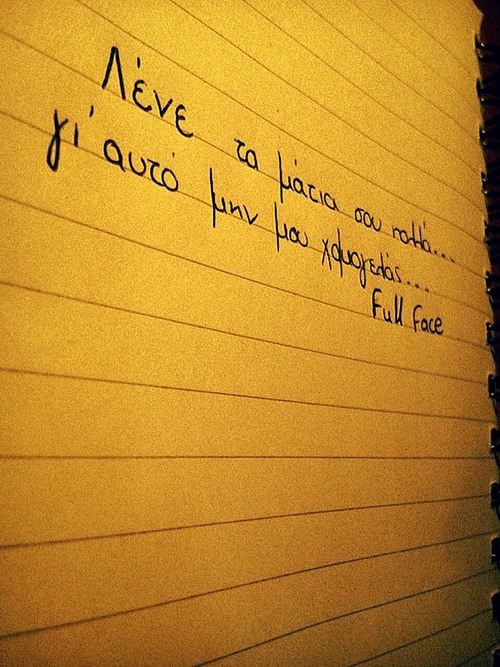 Λένε τα μάτια σου πολλά...
γι' αυτό μην μου χαμογελάς...
Full Face